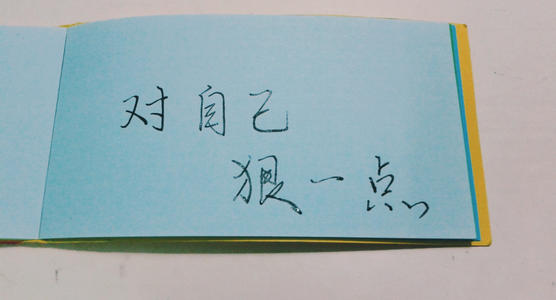 对自己
狠一点